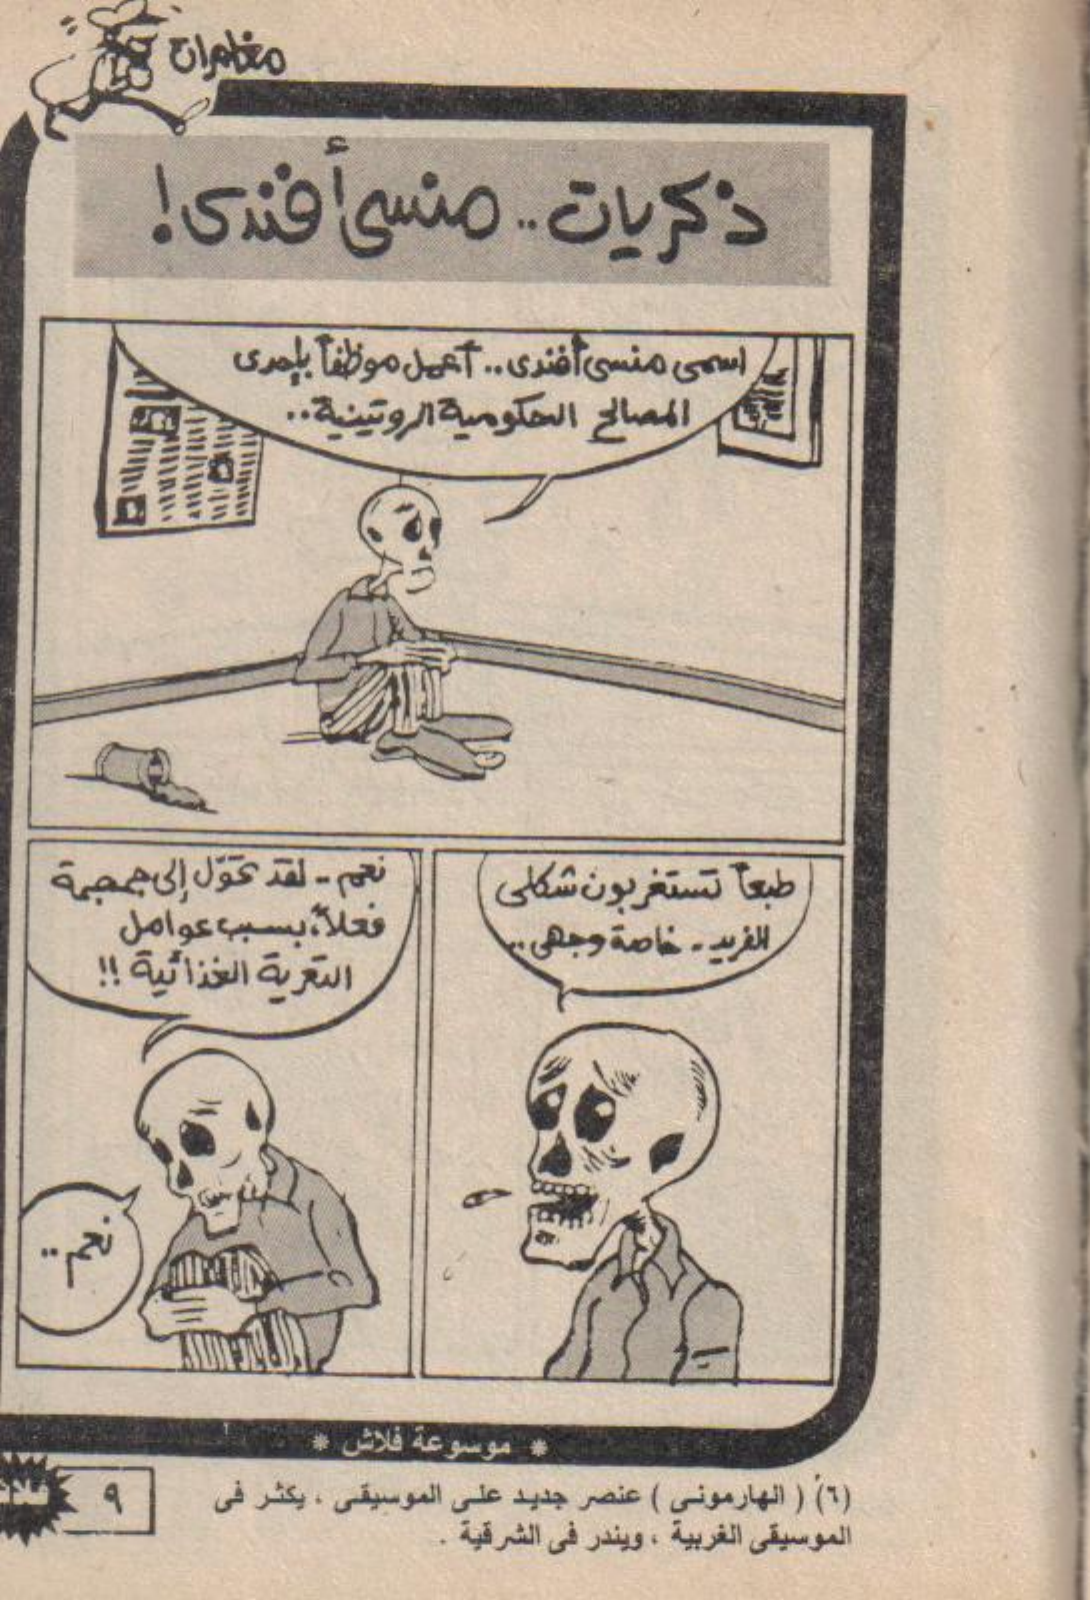 مغامرات
ذكريات .. منسى أفندى!
اسمى منسى أفندى .. أعمل موظفاً بإحدى
المصالح الحكومية الروتينية ..
طبعاً تستغربون شكلى
الفريد - خاصة وجهى ..
نعم - لقد تحوّل إلى جمجمة
فعلاً، بسبب عوامل
التعرية الغذائية !!
نعم ..
* موسوعة فلاش *
(٦) ( الهارمونى ) عنصر جديد على الموسيقى ، يكثر فى
الموسيقى الغربية ، ويندر فى الشرقية .
٩